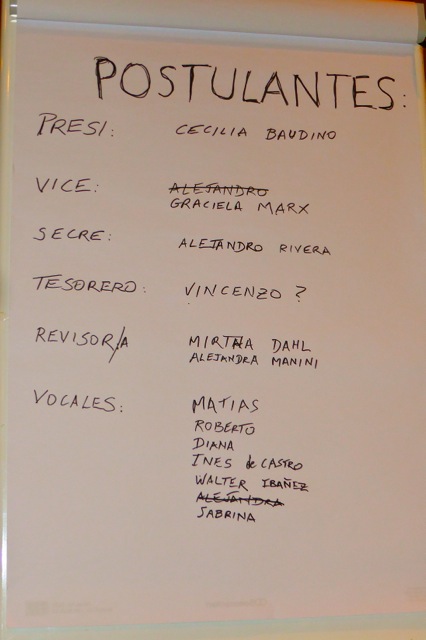 POSTULANTES:
PRESI: CECILIA BAUDINO
VICE: ALEJANDRO
GRACIELA MARX
SECRE: ALEJANDRO RIVERA
TESORERO: VINCENZO ?
REVISOR/A MIRTHA DAHL
ALEJANDRA MANINI
VOCALES: MATIAS
ROBERTO
DIANA
INES de CASTRO
WALTER IBAÑEZ
ALEJANDRA
SABRINA